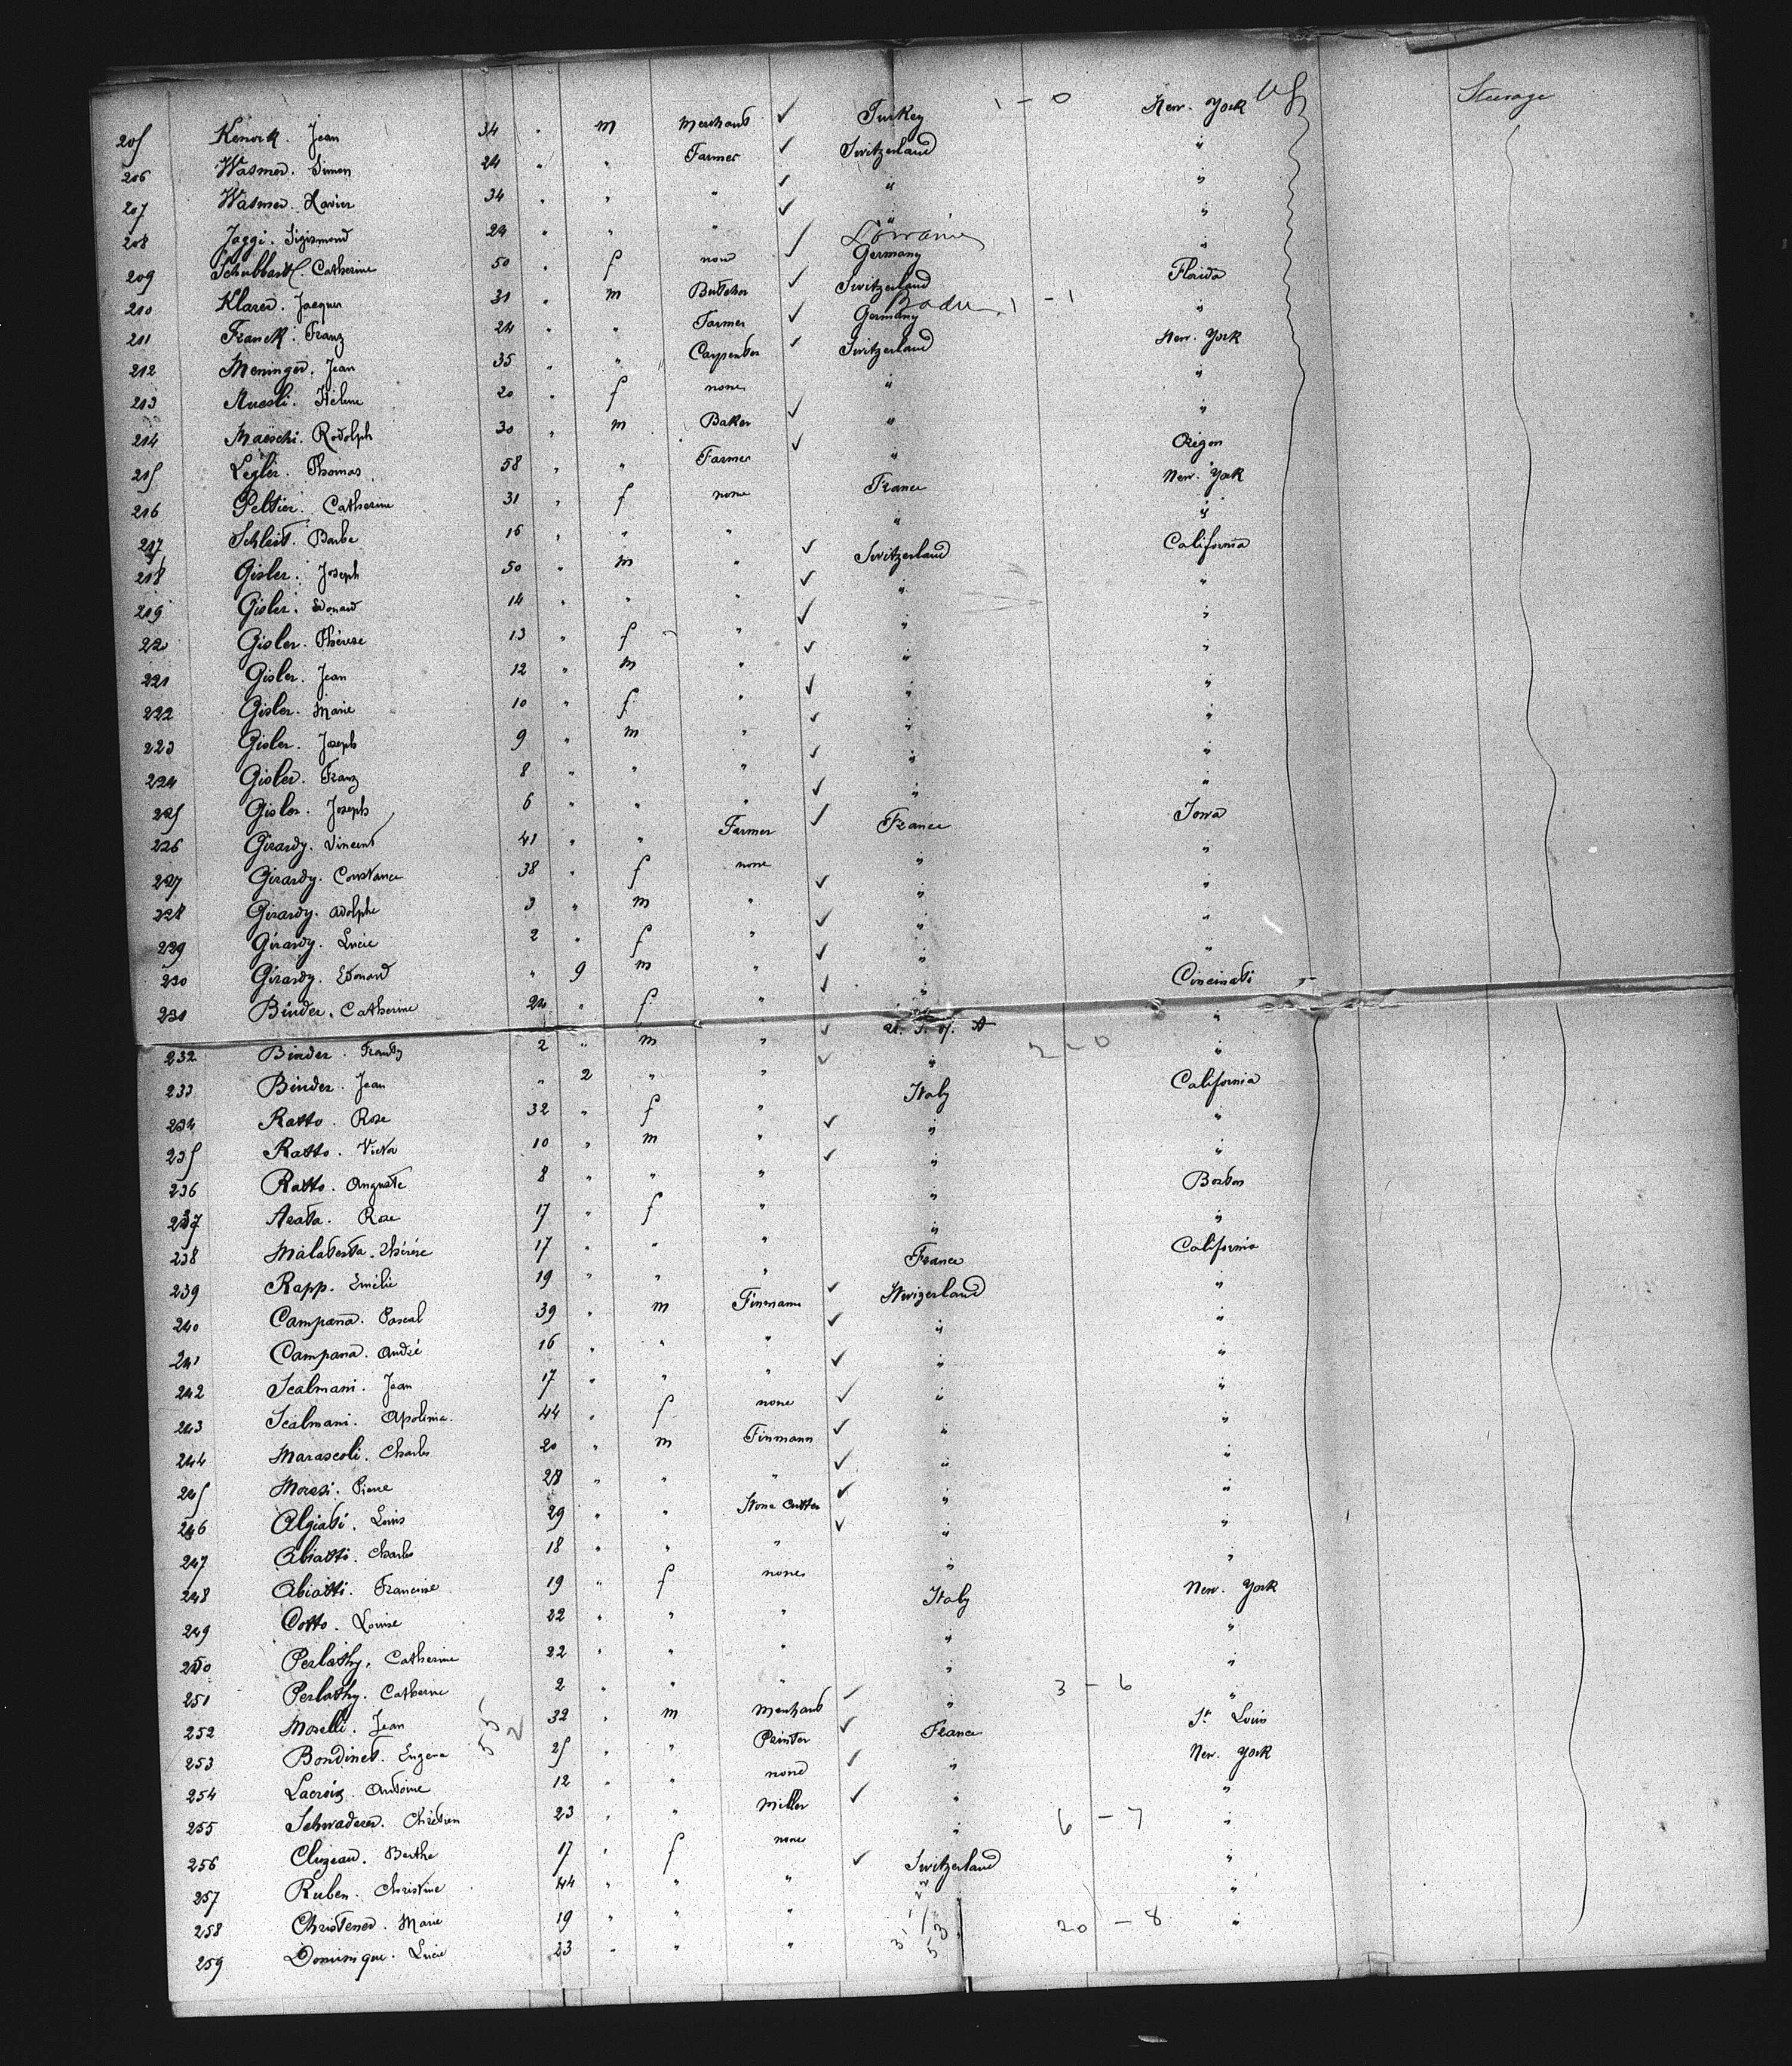 205 Kenork. Jean 34 " m Merchant ✓ Turkey 1 - 0 New. York Steerage
206 Wasmer. Simon 24 " " Farmer ✓ Switzerland "
207 Wasmer. Xavier 34 " " " ✓ " "
208 Jaggi. Sigismond 24 " " " ✓ " "
Lorraine
209 Schubbart. Catherine 50 " f none ✓ Germany "
210 Klarer. Jacques 31 " m Butcher ✓ Switzerland Florida
Baden 1 - 1
211 Franck. Franz 24 " " Farmer ✓ Germany "
212 Meninger. Jean 35 " " Carpenter ✓ Switzerland New. York
213 Auesli. Hélène 20 " f none " "
214 Maeschi. Rodolph 30 " m Baker ✓ " "
215 Legler. Thomas 58 " " Farmer ✓ " Oregon
216 Peltier. Catherine 31 " f none France New. York
217 Schleit. Barbe 16 " " " " "
218 Gisler. Joseph 50 " m " ✓ Switzerland California
219 Gisler. Edouard 14 " " " ✓ " "
220 Gisler. Thérèse 13 " f " ✓ " "
221 Gisler. Jean 12 " m " ✓ " "
222 Gisler. Marie 10 " f " ✓ " "
223 Gisler. Joseph 9 " m " ✓ " "
224 Gisler. Franz 8 " " " ✓ " "
225 Gisler. Joseph 6 " " " ✓ " "
226 Girardy. Vincent 41 " " Farmer ✓ France Iowa
227 Girardy. Constance 38 " f none " "
228 Girardy. Adolphe 3 " m " ✓ " "
229 Girardy. Lucie 2 " f " ✓ " "
230 Girardy. Edouard " 9 m " ✓ " "
231 Binder. Catherine 24 " f " ✓ " Cincinati
232 Binder. Frantz 2 " m " ✓ U. S. of. A "
233 Binder. Jean " 2 " " ✓ " 2 - 0 "
234 Ratto. Rose 32 " f " Italy California
235 Ratto. Victor 10 " m " ✓ " "
236 Ratto. Auguste 8 " " " ✓ " "
237 Arata. Rose 17 " f " " Boston
238 Malatesta. Thérèse 17 " " " " "
239 Rapp. Emélie 19 " " " France California
240 Campana. Pascal 39 " m Finmann ✓ Swizerland "
241 Campana. André 16 " " " ✓ " "
242 Scalmani. Jean 17 " " " ✓ " "
243 Scalmani. Apolinia. 44 " f none ✓ " "
244 Marascoli. Charles 20 " m Finmann ✓ " "
245 Moresi. Pierre 28 " " " ✓ " "
246 Algiati. Louis 29 " " Stone Cutter ✓ " "
247 Abiatti. Charles 18 " " " ✓ " "
248 Abiatti. Francoise 19 " f none " "
249 Cotto. Louise 22 " " " Italy New. York
250 Perlathy. Catherine 22 " " " " "
251 Perlathy. Catherine 2 " " " " 3 - 6 "
252 Moselli. Jean 32 " m Merchant ✓ " "
253 Bondinet. Eugene 25 " " Painter ✓ France St Louis
254 Lacroix. Antoine 12 " " none ✓ " New. York
255 Schwaderer. Chrétien 23 " " Miller ✓ " "
256 Cluzeau. Berthe 17 " f none " 6 - 7 "
257 Ruben. Christine 44 " " " ✓ Switzerland "
258 Christener. Marie 19 " " " "
259 Dominique. Lucie 23 " " " 20 - 8 "
53